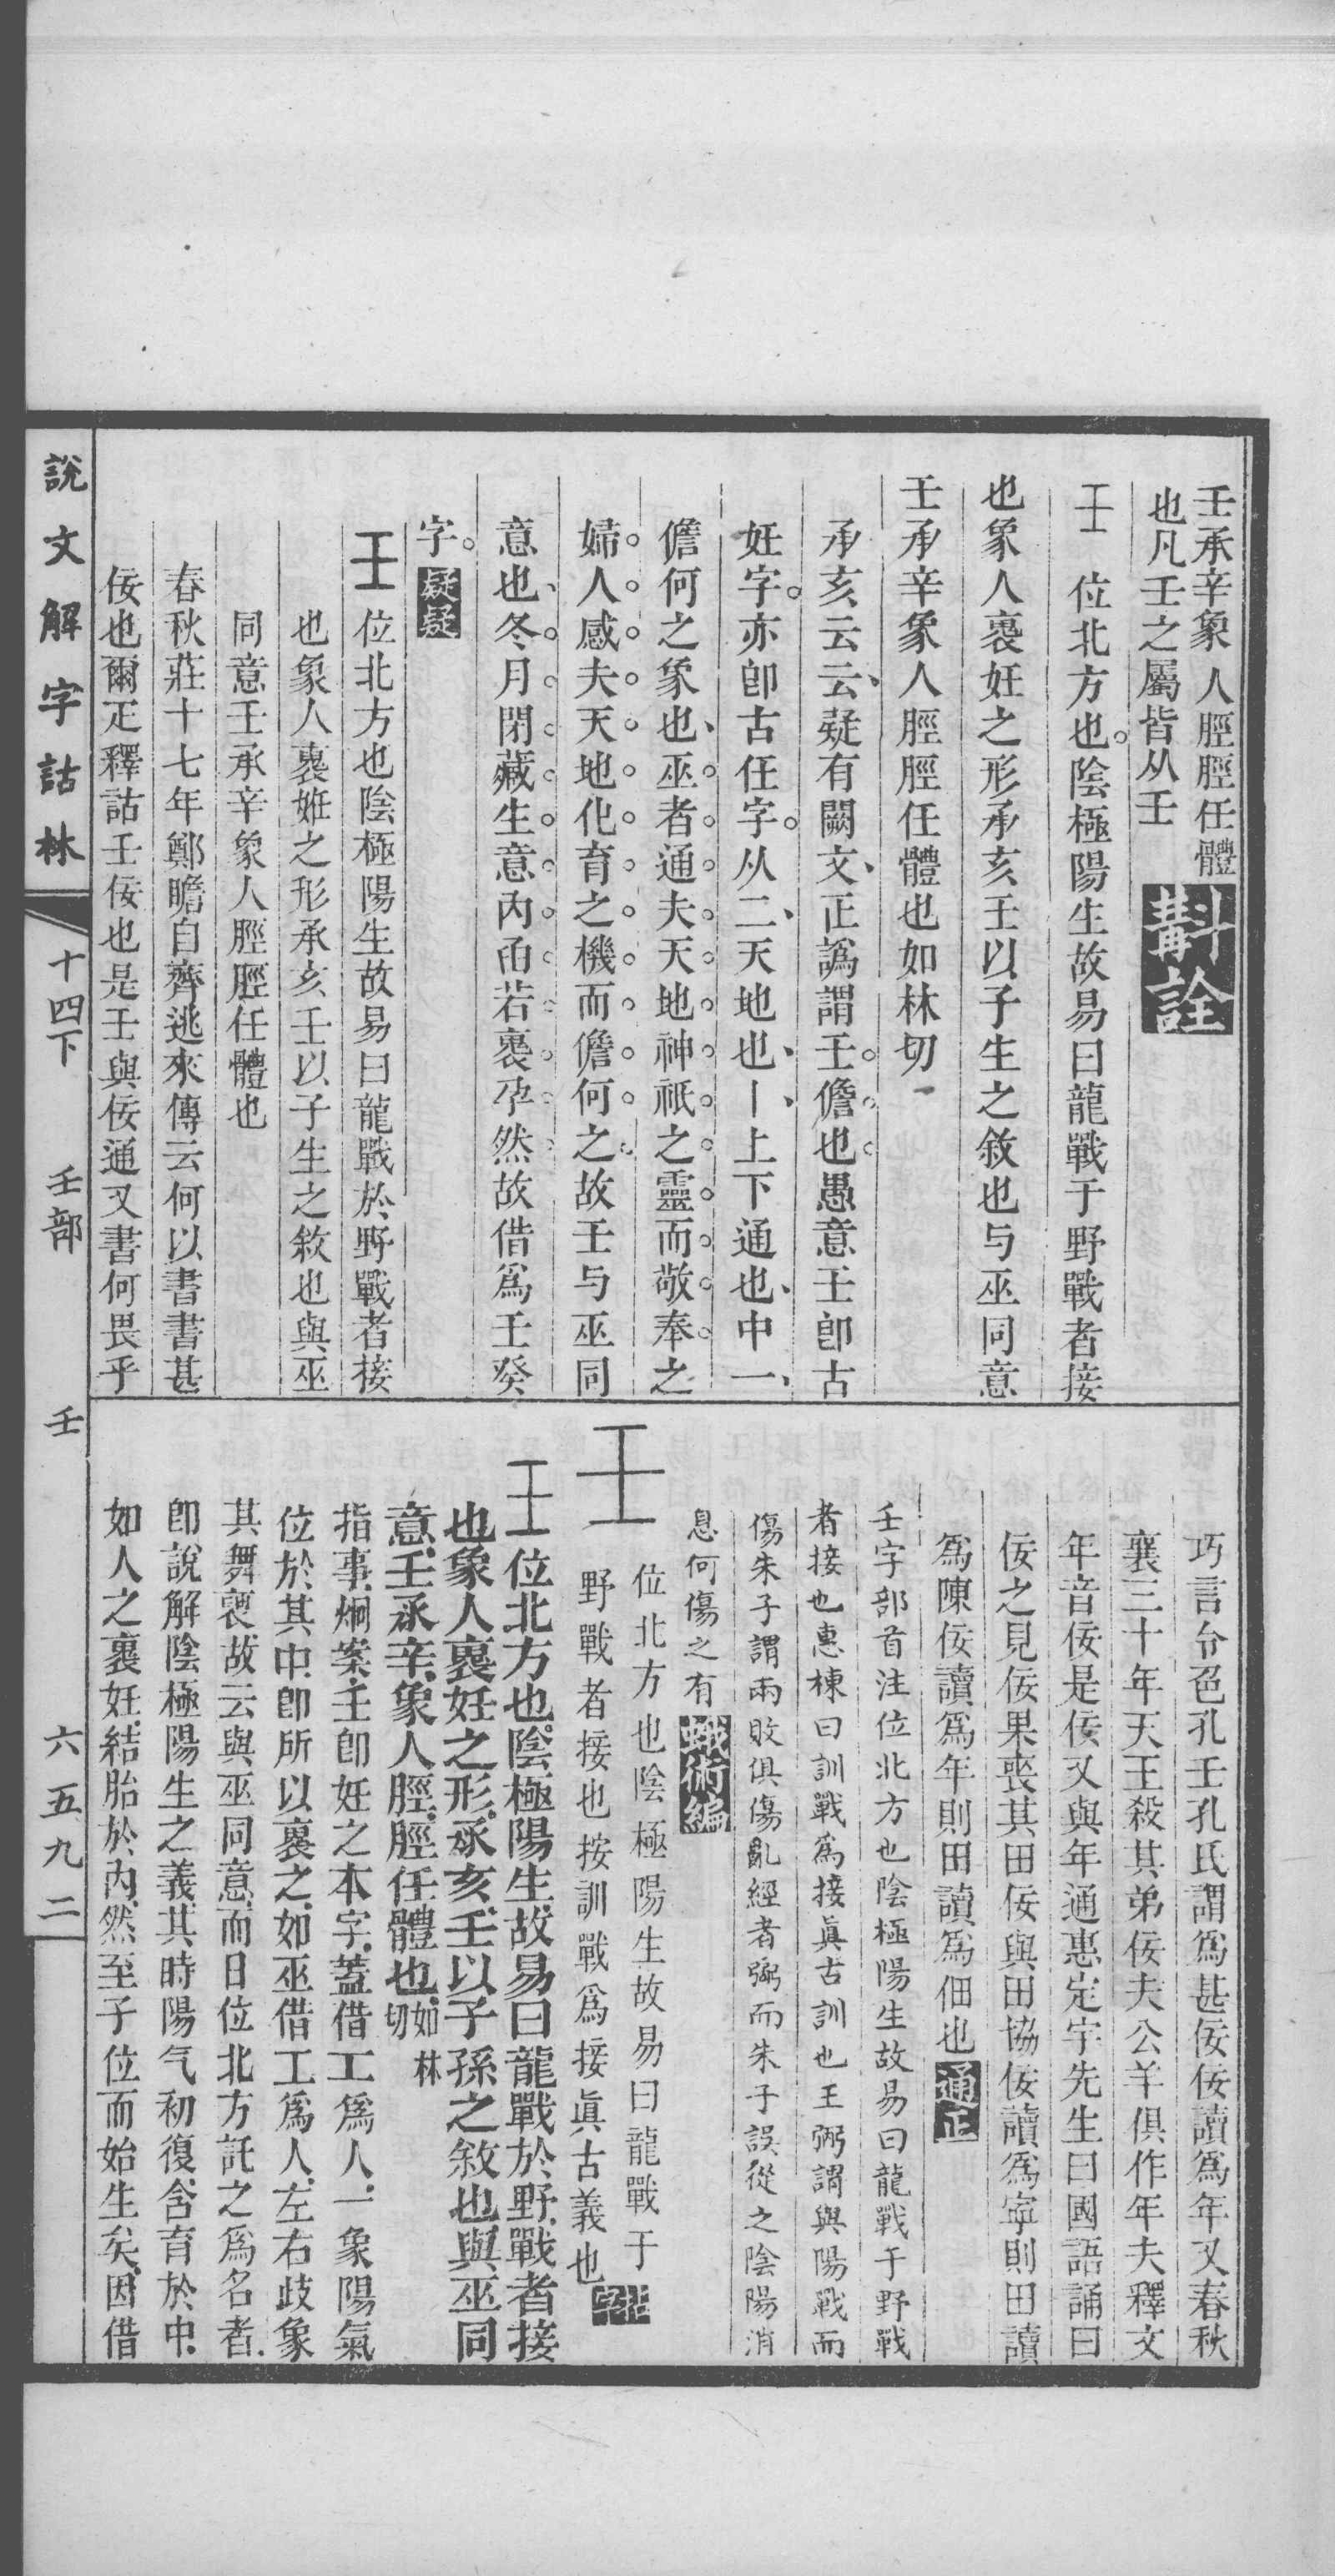 壬承辛象人脛脛任體
也凡壬之屬皆从壬
斠詮
壬 位北方也陰極陽生故易曰龍戰于野戰者接
也象人裹妊之形承亥壬以子生之敘也与巫同意
壬承辛象人脛脛任體也如林切
承亥云云疑有闕文正譌謂壬儋也愚意壬卽古
妊字亦卽古任字从二天地也丨上下通也中一
儋何之象也巫者通夫天地神祇之靈而敬奉之
婦人感夫天地化育之機而儋何之故壬与巫同
意也冬月閉藏生意內函若裹孕然故借爲壬癸
字疑疑
壬 位北方也陰極陽生故易曰龍戰於野戰者接
也象人裹妊之形承亥壬以子生之敘也與巫
同意壬承辛象人脛脛任體也
春秋莊十七年鄭瞻自齊逃來傳云何以書書甚
佞也爾疋釋詁壬佞也是壬與佞通又書何畏乎
巧言令色孔壬孔氏謂爲甚佞佞讀爲年又春秋
襄三十年天王殺其弟佞夫公羊俱作年夫釋文
年音佞是佞又與年通惠定宇先生曰國語誦曰
佞之見佞果喪其田佞與田協佞讀爲寧則田讀
爲陳佞讀爲年則田讀爲佃也通正
壬字部首注位北方也陰極陽生故易曰龍戰于野戰
者接也惠棟曰訓戰爲接眞古訓也王弼謂與陽戰而
傷朱子謂兩敗俱傷亂經者弼而朱子誤從之陰陽消
息何傷之有蛾術編
壬
位北方也陰極陽生故易曰龍戰于
野戰者接也按訓戰爲接眞古義也
拈字
壬 位北方也陰極陽生故易曰龍戰於野戰者接
也象人裹妊之形承亥壬以子孫之敘也與巫同
意壬承辛象人脛脛任體也如林切
指事炯案壬卽妊之本字蓋借工爲人一象陽氣
位於其中卽所以裹之如巫借工爲人左右歧象
其舞褎故云與巫同意而曰位北方託之爲名者
卽說解陰極陽生之義其時陽气初復含育於中
如人之裹妊結胎於內然至子位而始生矣因借
說文解字詁林 十四下 壬部 壬 六五九二